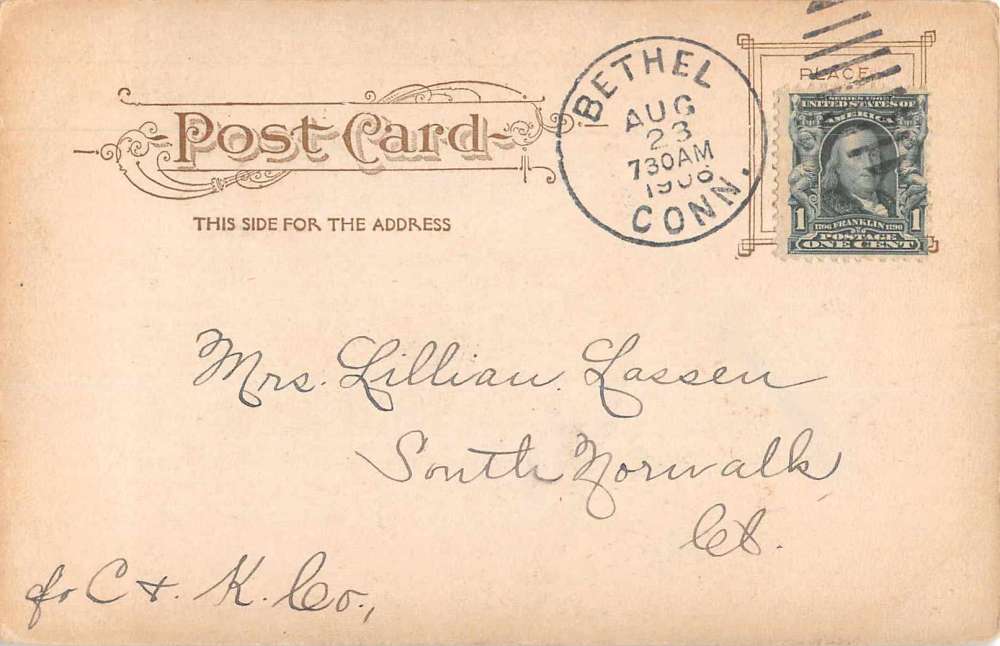 Post Card
THIS SIDE FOR THE ADDRESS
BETHEL
AUG
23
730AM
1906
CONN.
PLACE
SERIES 1902
UNITED STATES OF
AMERICA
1 1
1706 FRANKLIN 1790
POSTAGE
ONE CENT
Mrs. Lillian. Lassen
South Norwalk
Ct.
℅ C & K. Co.,